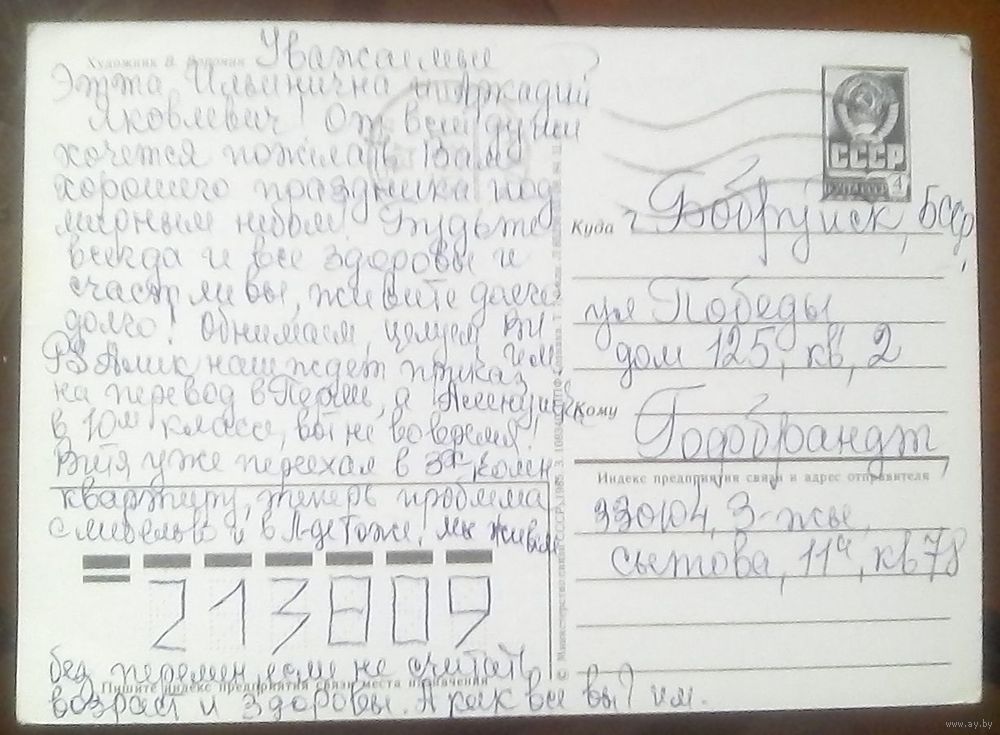 Художник В.
Уважаемые
Этта Ильинична и Аркадий
Яковлевич! От всей души
хочется пожелать Вам
хорошего праздника под
мирным небом! Будьте
всегда и все здоровы и
счастливы, живите
долго! Обнимаем, целуем
наш ждет приказ
на перевод в Пермь, а
в 10м классе, вот не вовремя!
Витя уже переехал в 3х
квартиру, теперь проблема
с мебелью и в Л-де тоже! Мы живем
213809
без перемен, если не считать
Пишите индекс предприятия связи места назначения
возраст и здоровье. А как все вы?
СССР
4
Куда г Бобруйск, БССР,
ул Победы
дом 125, кв, 2
Кому Годобрандт,
Индекс предприятия связи и адрес отправителя
330104, 3-жье,
11а, кв 78
© Министерство связи СССР, 1983.
www.ay.by